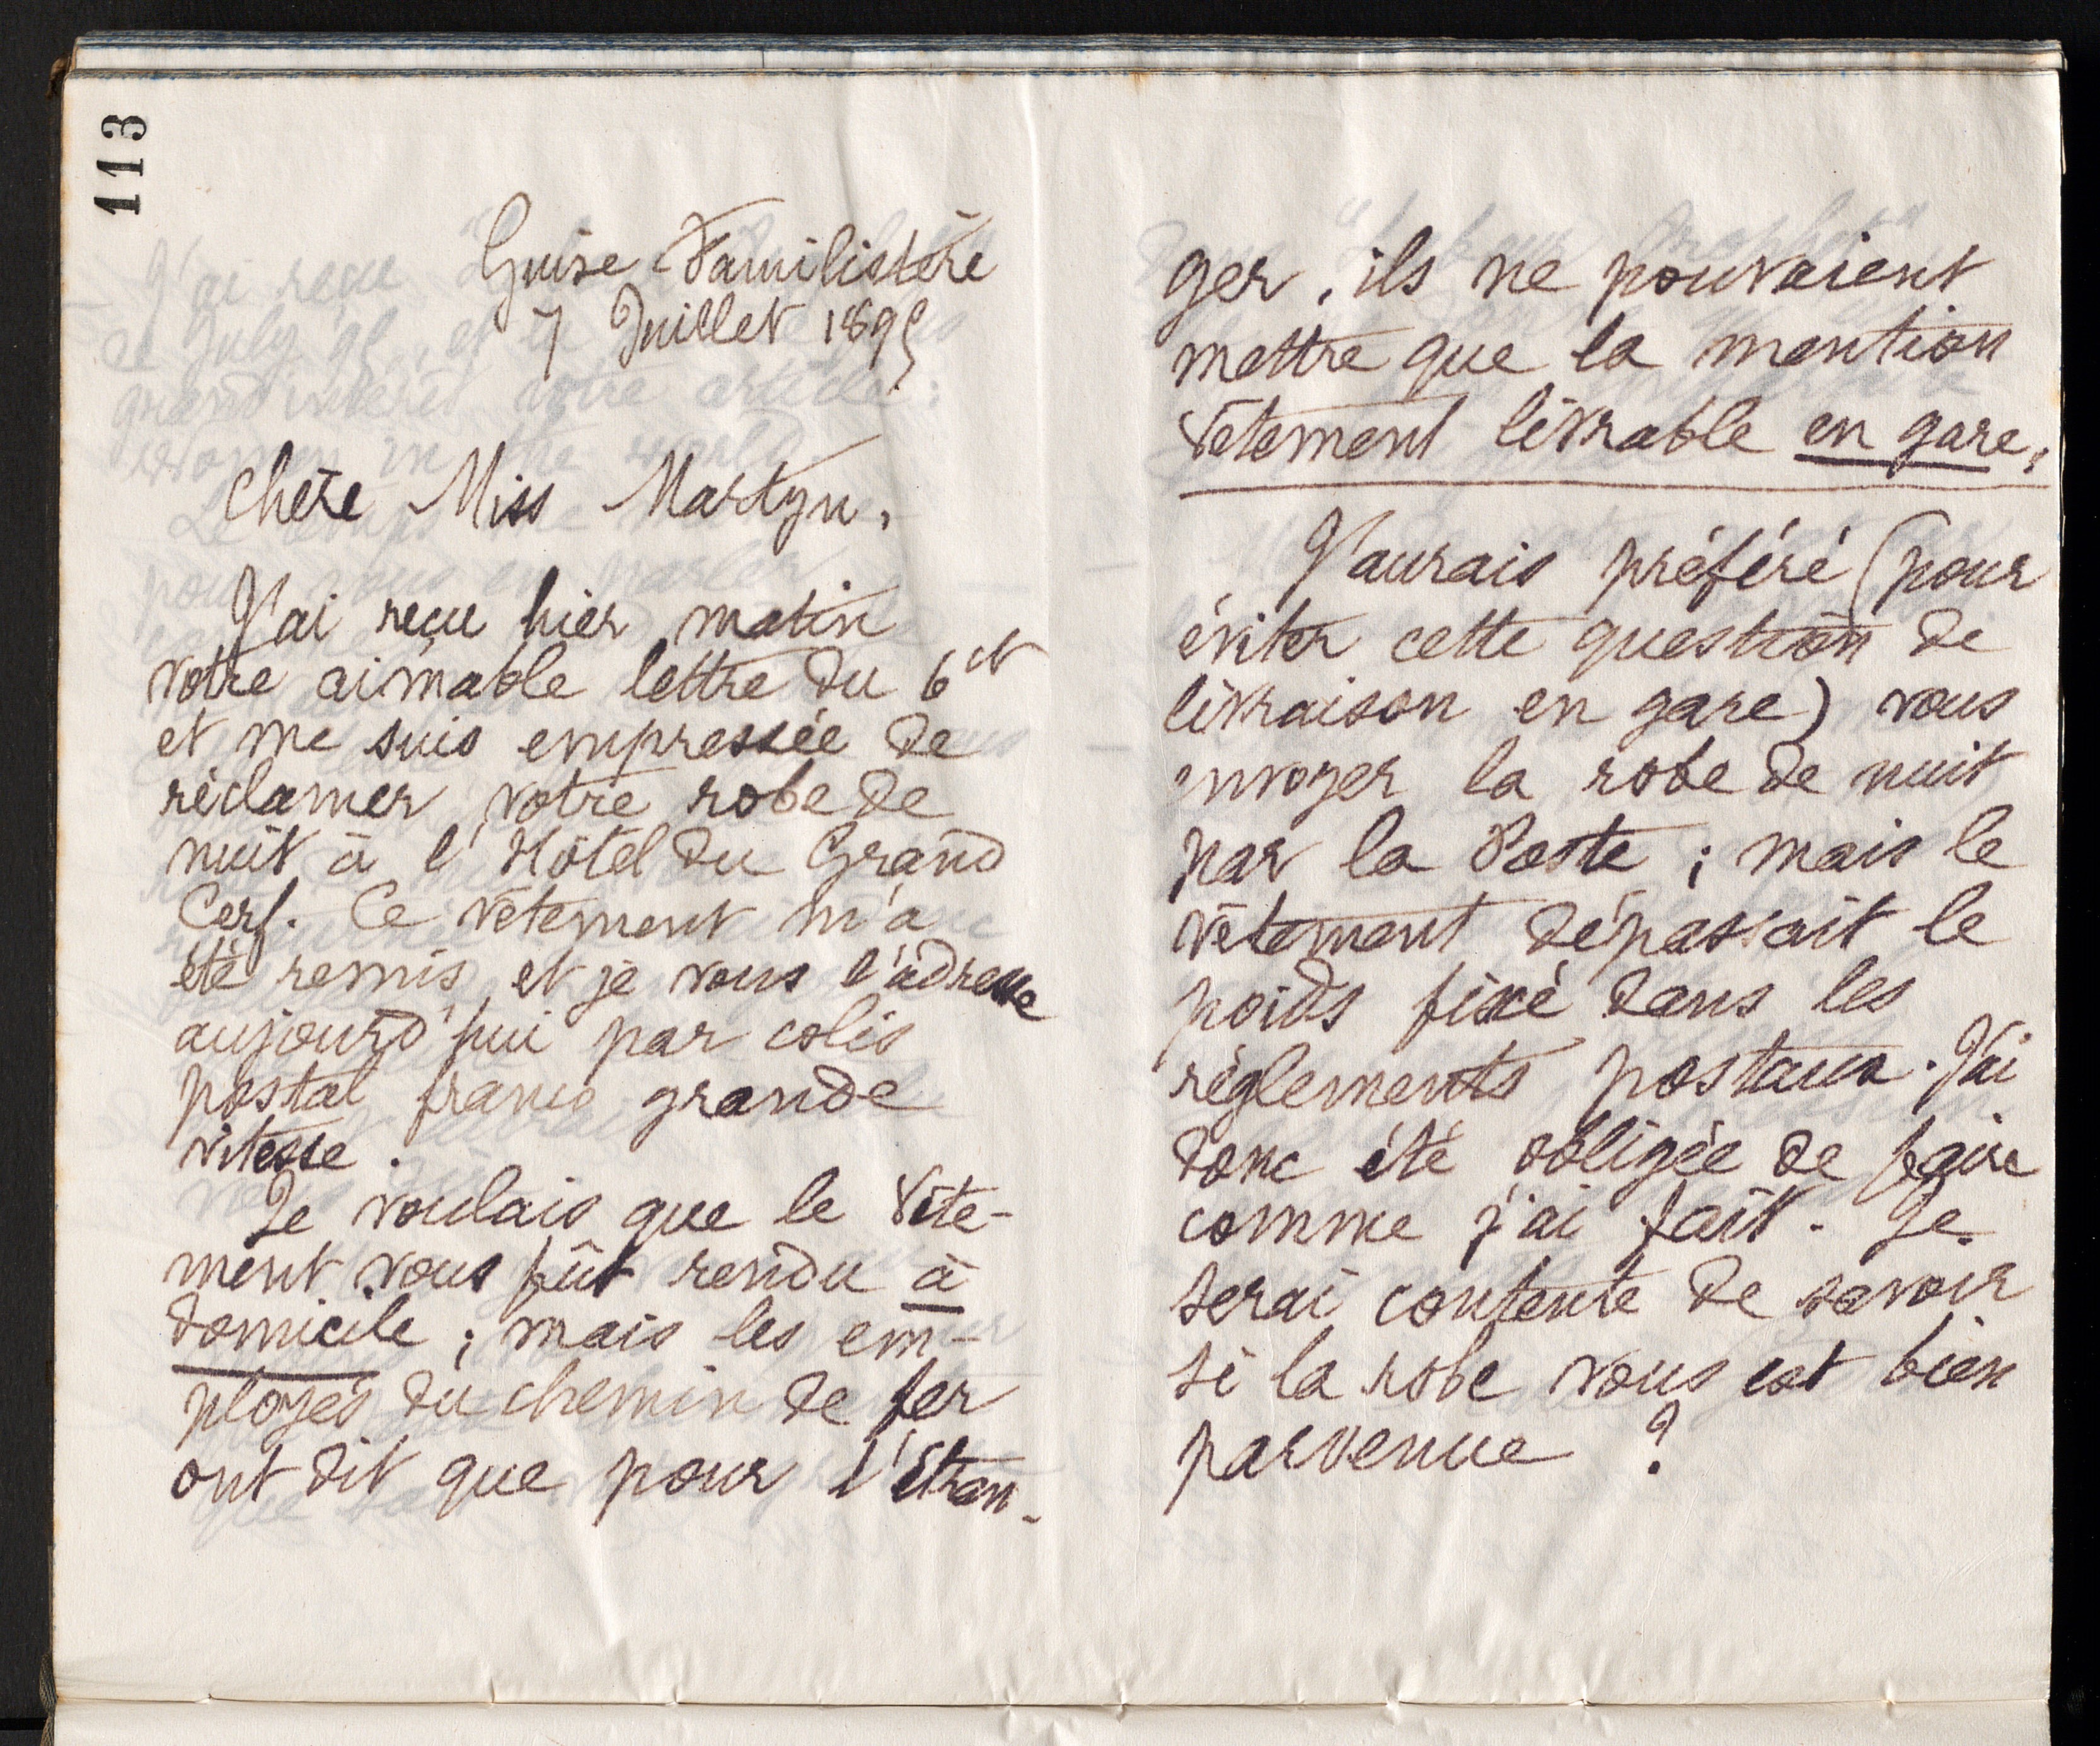 113
Guise Familistère
7 Juillet 1895
Chère Miss Martyn,
J'ai reçu hier matin
votre aimable lettre du 6 ct
et me suis empressée de
réclamer votre robe de
nuit à l'Hôtel du Grand
Cerf. Ce vêtement m'a
été remis et je vous l'adresse
aujourd'hui par colis
postal franco grande
vitesse.
Je voulais que le vête-
ment vous fût rendu à
domicile ; mais les em-
ployés du chemin de fer
ont dit que pour l'Etran-
ger, ils ne pouvaient
mettre que la mention
Vêtement livrable en gare.
J'aurais préféré (pour
éviter cette question de
livraison en gare) vous
envoyer la robe de nuit
par la Poste ; mais le
vêtement dépassait le
poids fixé dans les
règlements postaux. J'ai
donc été obligée de faire
comme j'ai fait. Je
serai contente de savoir
si la robe vous est bien
parvenue ?